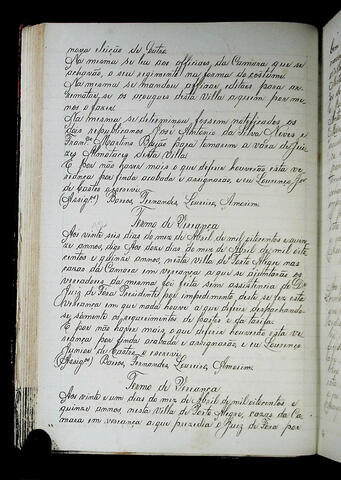 nova eleição de Datas.
Na mesma se leu aos officiaes da Camara que se
achavão, o seu regimento na forma do costume.
Na mesma se mandou affixar editaes para ar-
rematar, se os açougues desta Villa a quem por me-
nos o faça.
Na mesma se determinou fossem notificados os
dois republicanos José Antonio da Silva Neves e
Franco Martins para tomarem a vara de Jui-
zes Almotaces desta Villa.
E por não haver mais o que deferir houverão esta ve-
riança por finda acabada e assignarão, e eu Lourenço Jor
de Castro escrevi.
(Assigros) Barros, Fernandes, Loureiro, Amorim.
Termo de Veriança
Aos vinte seis dias do mez de Abril de mil oitocentos e quin-
ze annos, digo Aos doze dias do mez de Abril de mil oito
centos e quinze annos, nesta Villa de Porto Alegre nas
cazas da Camara em veriança a que se ajuntarão os
vereadores da mesma foi feita sem assistencia do Dr
Juiz de Fora Presidente por impedimento deste se fez esta
Veriança em que nada houve a que deferir despachando-
se somente a requerimentos de parte e da tarifa.
E por não haver mais o que deferir houverão esta ve-
riança por finda acabada e assignarão e eu Lourenço
Junior de Castro, o escrevi.
(Assigros) Barros, Fernandes Loureiro, Amorim.
Termo de Veriança
Aos vinte e um dias do mez de Abril de mil oitocentos e
quinze annos, nesta Villa de Porto Alegre, cazas da Ca-
mara em veriança a que prezidio o Juiz de Fora por